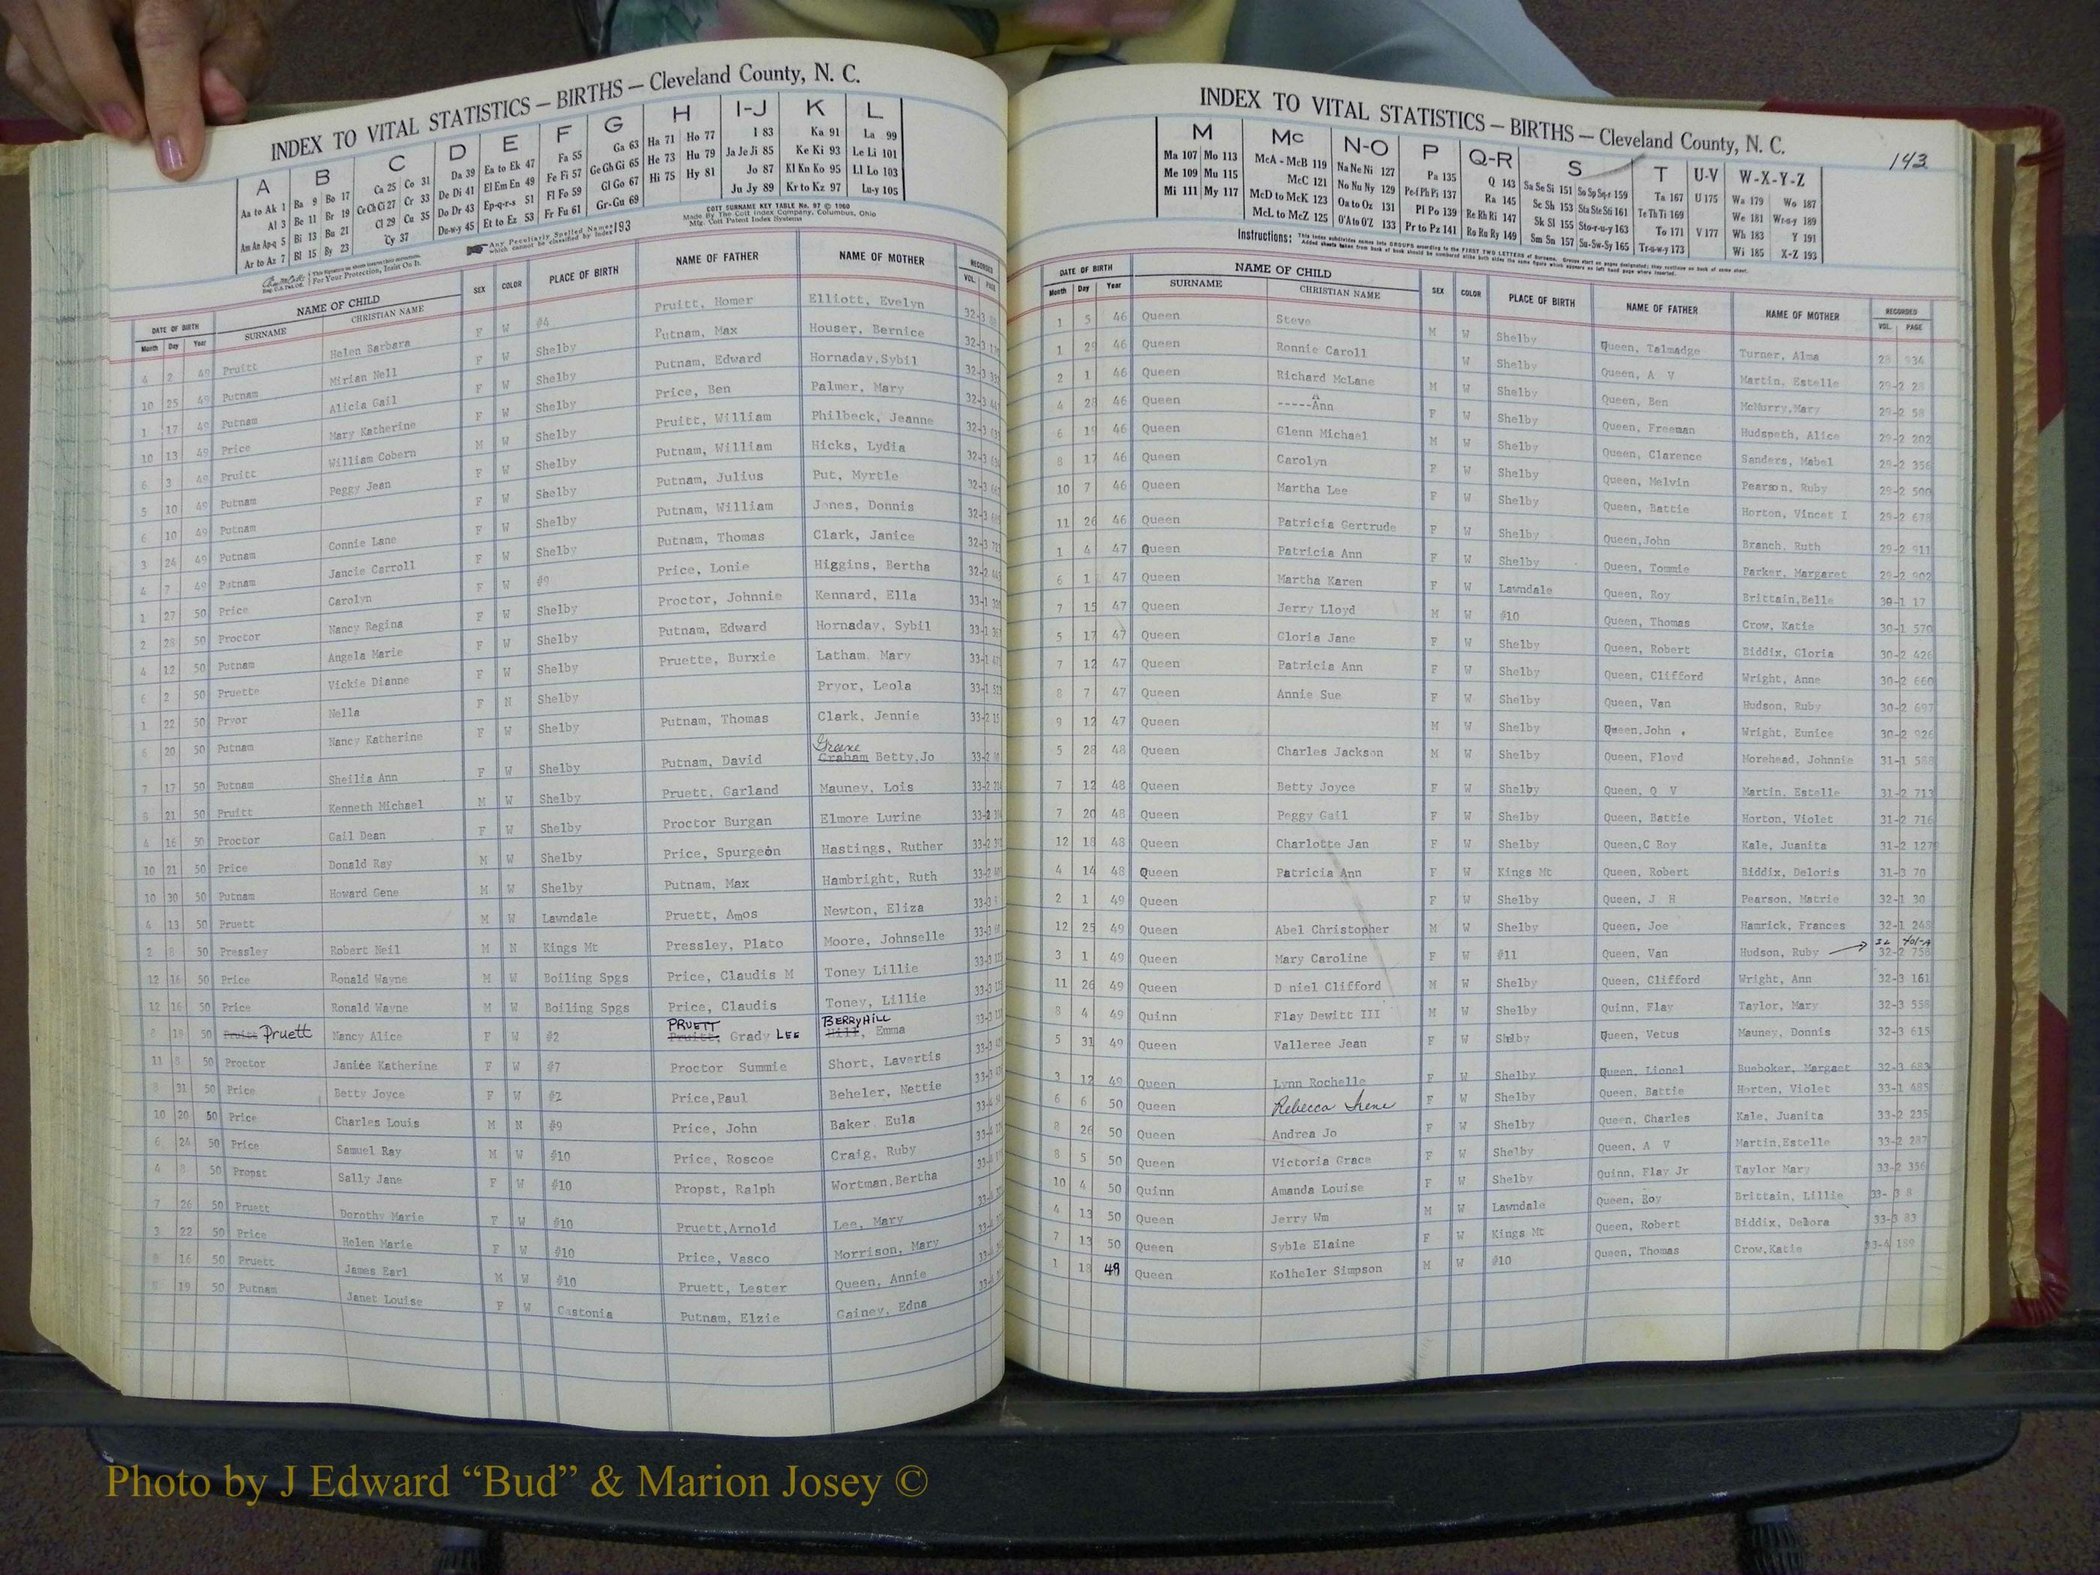 INDEX TO VITAL STATISTICS — BIRTHS — Cleveland County, N. C.
A B C D E F G H I-J K L
Aa to Ak 1 Ba 9 Bo 17 Ca 25 Co 31 Da 39 Ea to Ek 47 Fa 55 Ga 63 Ha 71 Ho 77 I 83 Ka 91 La 99
Al 3 Be 11 Br 19 Ce Ch Ci 27 Cr 33 De Di 41 El Em En 49 Fe Fi 57 Ge Gh Gi 65 He 73 Hu 79 Ja Je Ji 85 Ke Ki 93 Le Li 101
Am An Ap-q 5 Bi 13 Bu 21 Cl 29 Cu 35 Do Dr 43 Ep-q-r-s 51 Fl Fo 59 Gl Go 67 Hi 75 Hy 81 Jo 87 Kl Kn Ko 95 Ll Lo 103
Ar to Az 7 Bl 15 By 23 Cy 37 Du-w-y 45 Et to Ez 53 Fr Fu 61 Gr-Gu 69 Ju Jy 89 Kr to Kz 97 Lu-y 105
COTT SURNAME KEY TABLE No. 97 © 1960
Made By The Cott Index Company, Columbus, Ohio
Any Peculiarly Spelled Names which cannot be classified by Index 193
For Your Protection, Insist On It.
DATE OF BIRTH NAME OF CHILD SEX COLOR PLACE OF BIRTH NAME OF FATHER NAME OF MOTHER RECORDED
Month Day Year SURNAME CHRISTIAN NAME VOL. PAGE
4 2 49 Pruitt Helen Barbara F W #4 Pruitt, Homer Elliott, Evelyn 32-3
10 25 49 Putnam Mirian Nell F W Shelby Putnam, Max Houser, Bernice 32-3
1 17 49 Putnam Alicia Gail F W Shelby Putnam, Edward Hornaday,Sybil 32-3
10 13 49 Price Mary Katherine F W Shelby Price, Ben Palmer, Mary 32-3
6 3 49 Pruitt William Cobern M W Shelby Pruitt, William Philbeck, Jeanne 32-3
5 10 49 Putnam Peggy Jean F W Shelby Putnam, William Hicks, Lydia 32-3
6 10 49 Putnam F W Shelby Putnam, Julius Put, Myrtle 32-3
3 24 49 Putnam Connie Lane F W Shelby Putnam, William Jones, Donnis 32-3
4 7 49 Putnam Jancie Carroll F W Shelby Putnam, Thomas Clark, Janice 32-3
1 27 50 Price Carolyn F W #9 Price, Lonie Higgins, Bertha 32-2
2 28 50 Proctor Nancy Regina F W Shelby Proctor, Johnnie Kennard, Ella 33-1
4 12 50 Putnam Angela Marie F W Shelby Putnam, Edward Hornaday, Sybil 33-1
6 2 50 Pruette Vickie Dianne F W Shelby Pruette, Burxie Latham, Mary 33-1
1 22 50 Pryor Nella F N Shelby Pryor, Leola 33-1
6 20 50 Putnam Nancy Katherine F W Shelby Putnam, Thomas Clark, Jennie 33-2 15
7 17 50 Putnam Sheilia Ann F W Shelby Putnam, David Greene Graham Betty,Jo 33-2
21 50 Pruitt Kenneth Michael M W Shelby Pruett, Garland Mauney, Lois 33-2
4 16 50 Proctor Gail Dean F W Shelby Proctor Burgan Elmore Lurine 33-2
10 21 50 Price Donald Ray M W Shelby Price, Spurgeon Hastings, Ruther 33-2
10 30 50 Putnam Howard Gene M W Shelby Putnam, Max Hambright, Ruth 33-2
4 13 50 Pruett M W Lawndale Pruett, Amos Newton, Eliza 33-3
2 8 50 Pressley Robert Neil M N Kings Mt Pressley, Plato Moore, Johnselle 33-3
12 16 50 Price Ronald Wayne M W Boiling Spgs Price, Claudis M Toney Lillie 33-3
12 16 50 Price Ronald Wayne M W Boiling Spgs Price, Claudis Toney, Lillie 33-3
8 19 50 Pruitt Pruett Nancy Alice F W #2 PRUETT Pruitt, Grady LEE BERRYHILL Hill, Emma 33-3
11 8 50 Proctor Janice Katherine F W #7 Proctor Summie Short, Lavertis 33-3
8 31 50 Price Betty Joyce F W #2 Price,Paul Beheler, Nettie 33-3
10 20 50 Price Charles Louis M N #9 Price, John Baker Eula 33-4
6 24 50 Price Samuel Ray M W #10 Price, Roscoe Craig, Ruby 33-4
4 8 50 Propst Sally Jane F W #10 Propst, Ralph Wortman,Bertha 33-4
7 26 50 Pruett Dorothy Marie F W #10 Pruett,Arnold Lee, Mary 33-4
3 22 50 Price Helen Marie F W #10 Price, Vasco Morrison, Mary 33-4
8 16 50 Pruett James Earl M W #10 Pruett, Lester Queen, Annie 33-4
19 50 Putnam Janet Louise F W Gastonia Putnam, Elzie Gainey, Edna 33-4
INDEX TO VITAL STATISTICS — BIRTHS — Cleveland County, N. C.
143
M Mc N-O P Q-R S T U-V W-X-Y-Z
Ma 107 Mo 113 McA - McB 119 Na Ne Ni 127 Pa 135 Q 143 Sa Se Si 151 So Sp Sq-r 159 Ta 167 U 175 Wa 179 Wo 187
Me 109 Mu 115 McC 121 No Nu Ny 129 Pe-f Ph Pi 137 Ra 145 Sc Sh 153 Sta Ste Sti 161 Te Th Ti 169 We 181 Wr-u-y 189
Mi 111 My 117 McD to McK 123 Oa to Oz 131 Pl Po 139 Re Rh Ri 147 Sk Sl 155 Sto-r-u-y 163 To 171 V 177 Wh 183 Y 191
McL to McZ 125 O'A to O'Z 133 Pr to Pz 141 Ro Ru Ry 149 Sm Sn 157 Su-Sw-Sy 165 Tr-u-w-y 173 Wi 185 X-Z 193
Instructions: This index subdivides names into GROUPS according to the FIRST TWO LETTERS of Surname. Groups start on pages designated; they continue on back of same sheet.
Added sheets taken from back of book should be numbered alike both sides the same figure which appears on left hand page where inserted.
DATE OF BIRTH NAME OF CHILD SEX COLOR PLACE OF BIRTH NAME OF FATHER NAME OF MOTHER RECORDED
Month Day Year SURNAME CHRISTIAN NAME VOL. PAGE
1 5 46 Queen Steve M W Shelby Queen, Talmadge Turner, Alma 28 934
1 29 46 Queen Ronnie Caroll W Shelby Queen, A V Martin, Estelle 29-2 28
2 1 46 Queen Richard McLane M W Shelby Queen, Ben McMurry,Mary 29-2 58
4 28 46 Queen -----Ann F W Shelby Queen, Freeman Hudspeth, Alice 29-2 202
6 19 46 Queen Glenn Michael M W Shelby Queen, Clarence Sanders, Mabel 29-2 356
8 17 46 Queen Carolyn F W Shelby Queen, Melvin Pearson, Ruby 29-2 500
10 7 46 Queen Martha Lee F W Shelby Queen, Battie Horton, Vincet I 29-2 678
11 26 46 Queen Patricia Gertrude F W Shelby Queen,John Branch, Ruth 29-2 911
1 4 47 Queen Patricia Ann F W Shelby Queen, Tommie Parker, Margaret 29-2 902
6 1 47 Queen Martha Karen F W Lawndale Queen, Roy Brittain,Belle 30-1 17
7 15 47 Queen Jerry Lloyd M W #10 Queen, Thomas Crow, Katie 30-1 570
5 17 47 Queen Gloria Jane F W Shelby Queen, Robert Biddix, Gloria 30-2 426
7 12 47 Queen Patricia Ann F W Shelby Queen, Clifford Wright, Anne 30-2 660
8 7 47 Queen Annie Sue F W Shelby Queen, Van Hudson, Ruby 30-2 697
9 12 47 Queen M W Shelby Queen,John Wright, Eunice 30-2 926
5 28 48 Queen Charles Jackson M W Shelby Queen, Floyd Morehead, Johnnie 31-1 588
7 12 48 Queen Betty Joyce F W Shelby Queen, Q V Martin, Estelle 31-2 713
7 20 48 Queen Peggy Gail F W Shelby Queen, Battie Horton, Violet 31-2 716
12 18 48 Queen Charlotte Jan F W Shelby Queen,C Roy Kale, Juanita 31-2 127
4 14 48 Queen Patricia Ann F W Kings Mt Queen, Robert Biddix, Deloris 31-3 70
2 1 49 Queen F W Shelby Queen, J H Pearson, Matrie 32-1 30
12 25 49 Queen Abel Christopher M W Shelby Queen, Joe Hamrick, Frances 32-1 248
3 1 49 Queen Mary Caroline F W #11 Queen, Van Hudson, Ruby 32-2 758
11 26 49 Queen D niel Clifford M W Shelby Queen, Clifford Wright, Ann 32-3 161
8 4 49 Quinn Flay Dewitt III M W Shelby Quinn, Flay Taylor, Mary 32-3 558
5 31 49 Queen Valleree Jean F W Shelby Queen, Vetus Mauney, Donnis 32-3 615
3 12 49 Queen Lynn Rochelle F W Shelby Queen, Lionel Bueboker, Margaet 32-3 683
6 6 50 Queen Rebecca Irene F W Shelby Queen, Battie Horten, Violet 33-1 485
8 26 50 Queen Andrea Jo F W Shelby Queen, Charles Kale, Juanita 33-2 235
8 5 50 Queen Victoria Grace F W Shelby Queen, A V Martin,Estelle 33-2 287
10 4 50 Quinn Amanda Louise F W Shelby Quinn, Flay Jr Taylor Mary 33-2 356
4 13 50 Queen Jerry Wm M W Lawndale Queen, Roy Brittain, Lillie 33- 3 8
7 13 50 Queen Syble Elaine F W Kings Mt Queen, Robert Biddix, Debora 33-3 83
1 18 49 Queen Kolheler Simpson M W #10 Queen, Thomas Crow,Katie 33-4 189
Photo by J Edward “Bud” & Marion Josey ©